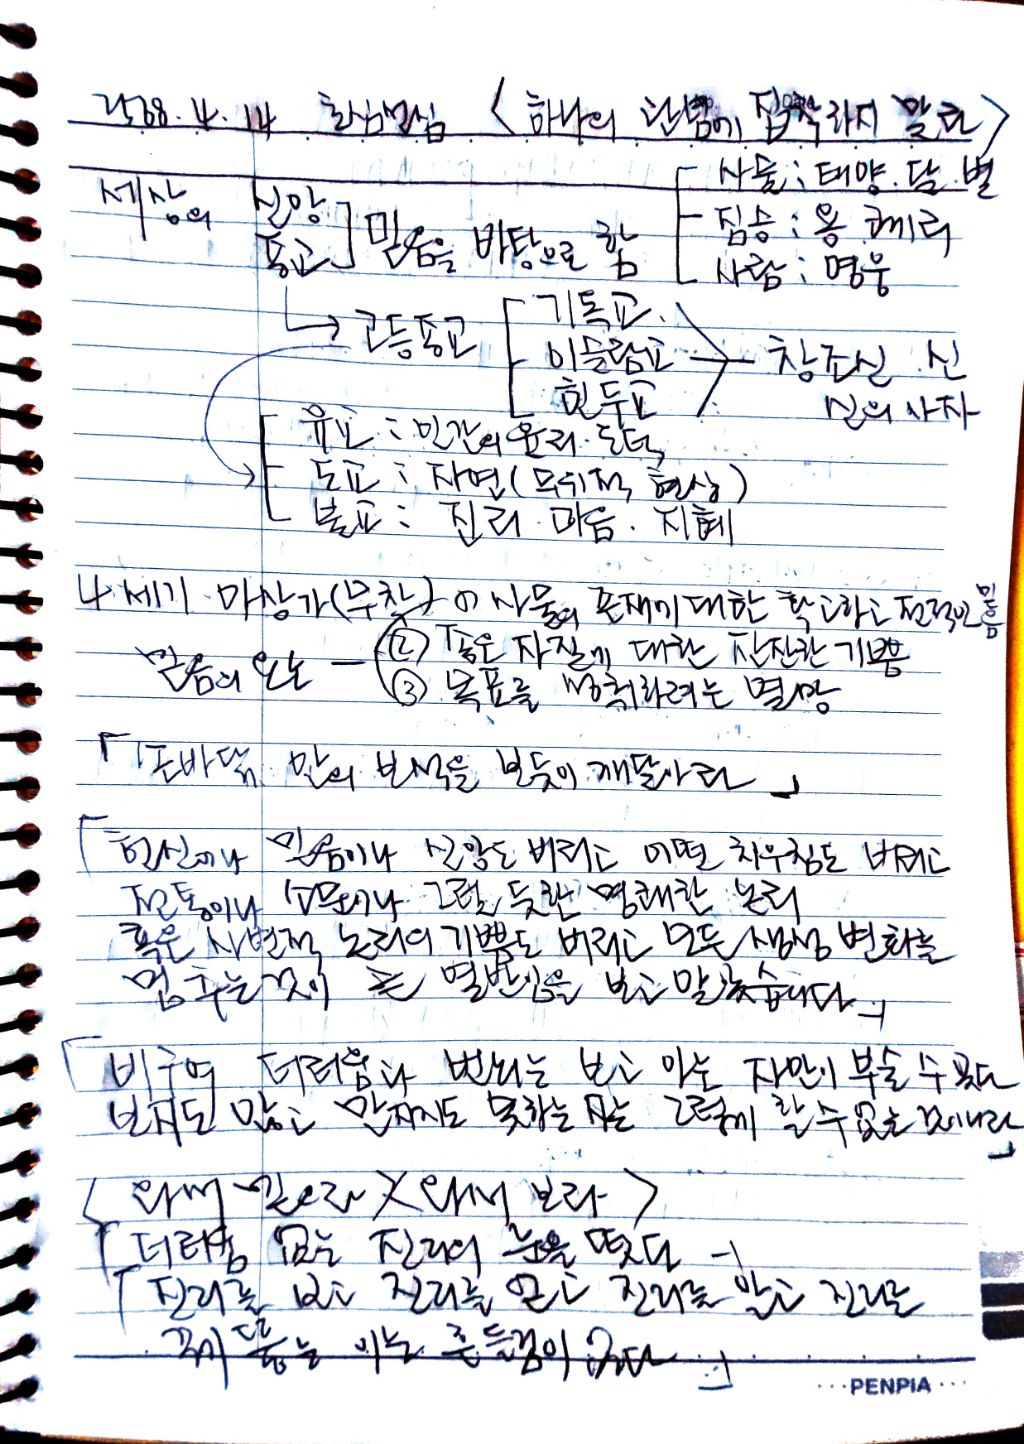 2568.4.14 초심법심 〈하나의 한법에 집착하지 말고〉
세상의 신앙 종교] 믿음을 바탕으로 함
사물: 태양. 달. 별
짐승: 용
사람: 영웅
고등종교
기독교.
이슬람교
힌두교
창조신 신
신의 사자
유교: 인간의 윤리. 도덕
도교: 자연(무위적 현상)
불교: 진리. 마음. 지혜
4세기 (무착) ① 사물의 존재에 대한 확고하고 전적인 믿음
믿음의 ② 좋은 자질에 대한 잔잔한 기쁨
③ 목표를 성취하려는 열망
「손바닥 안의 보석을 보듯이 깨달아라」
「헌신이나 믿음이나 신앙도 버리고 어떤 치우침도 버리고
전통이나 소문이나 그럴 듯한 명쾌한 논리
혹은 사변적 논리의 기쁨도 버리고 모두 생성 변화를
멈추는 것이 열반임을 보고 말했습니다」
「비구여 더러움과 번뇌는 보고 아는 자만이 부술 수 있다
보지도 않고 알지도 못하는 자는 그렇게 할 수 없는 것이니라」
〈와서 믿으라 X 와서 보라〉
「더러움 없는 진리의 눈을 떴다」
「진리를 보고 진리를 얻고 진리를 알고 진리를
꿰뚫는 이는 흔들림이 없다」
PENPIA